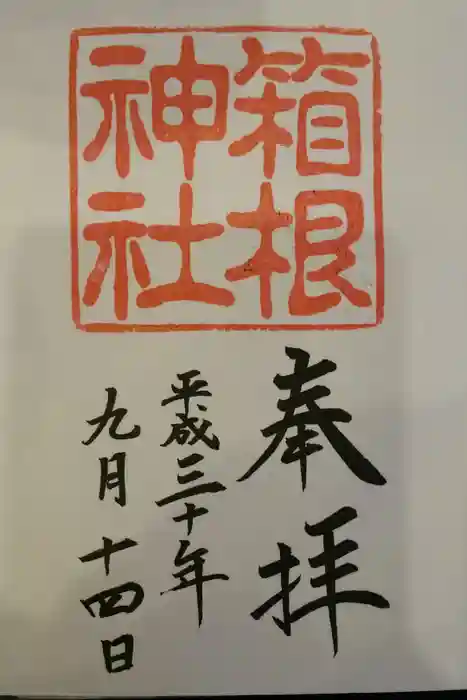 箱根
神社
奉拝
平成三十年
九月十四日